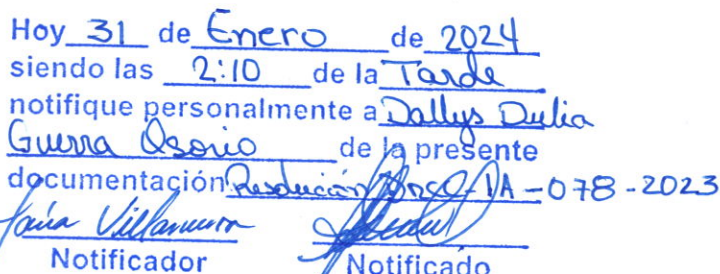 Hoy 31 de Enero de 2024
siendo las 2:10 de la Tarde
notifique personalmente a Dallys Dulia
Guerra Osorio de la presente
documentación Resolución IA-078-2023
Villamura
Notificador Notificado